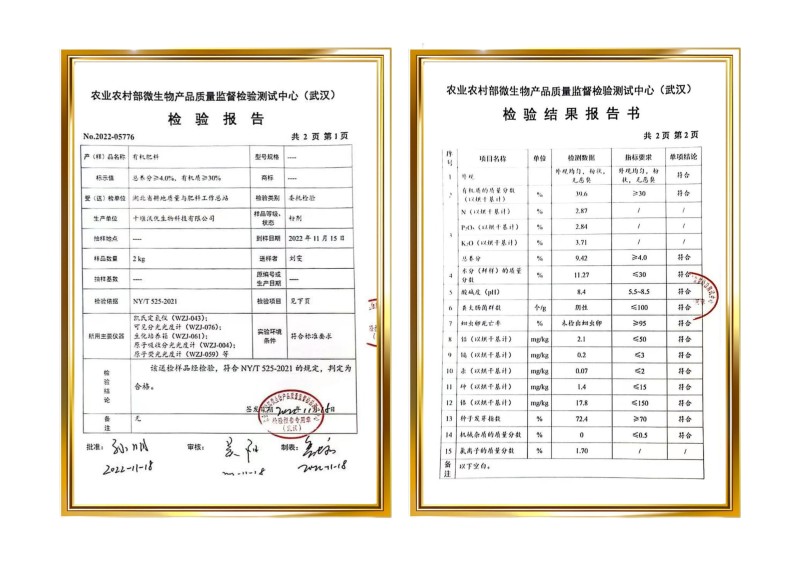 农业农村部微生物产品质量监督检验测试中心（武汉）
检 验 报 告
No.2022-05776 共 2 页 第 1 页
产（样）品名称 有机肥料 型号规格 ----
标示值 总养分≥4.0%，有机质≥30% 商标 ----
受（送）检单位 湖北省耕地质量与肥料工作总站 检验类别 委托检验
生产单位 十堰沃优生物科技有限公司 样品等级、状态 粉剂
抽样地点 ---- 到样日期 2022 年 11 月 15 日
样品数量 2 kg 送样者 刘雯
抽样基数 ---- 原编号或生产日期 ----
检验依据 NY/T 525-2021 检验项目 见下页
所用主要仪器 凯氏定氮仪（WZJ-043）；
可见分光光度计（WZJ-076）；
生化培养箱（WZJ-061）；
原子吸收分光光度计（WZJ-004）；
原子荧光光度计（WZJ-059）等
实验环境条件 符合标准要求
检验结论 该送检样品经检验，符合 NY/T 525-2021 的规定，判定为
合格。
检验报告专用章
（武汉）
备注 无
批准： 审核： 制表：
2022-11-18 2022-11-18
农业农村部微生物产品质量监督检验测试中心（武汉）
检 验 结 果 报 告 书
共 2 页 第 2 页
序号 项目名称 单位 检测数据 指标要求 单项结论
1 外观 外观均匀，粉状，无恶臭 外观均匀，粉状，无恶臭 符合
2 有机质的质量分数（以烘干基计） % 39.6 ≥30 符合
3 N（以烘干基计） % 2.87 / /
P₂O₅（以烘干基计） % 2.84 / /
K₂O（以烘干基计） % 3.71 / /
总养分 % 9.42 ≥4.0 符合
4 水分（鲜样）的质量分数 % 11.27 ≤30 符合
5 酸碱度（pH） 8.4 5.5~8.5 符合
6 粪大肠菌群数 个/g 阴性 ≤100 符合
7 蛔虫卵死亡率 % 未检出蛔虫卵 ≥95 符合
8 铅（以烘干基计） mg/kg 2.1 ≤50 符合
9 镉（以烘干基计） mg/kg 0.2 ≤3 符合
10 汞（以烘干基计） mg/kg 0.07 ≤2 符合
11 砷（以烘干基计） mg/kg 1.4 ≤15 符合
12 铬（以烘干基计） mg/kg 17.8 ≤150 符合
13 种子发芽指数 % 72.4 ≥70 符合
14 机械杂质的质量分数 % 0 ≤0.5 符合
15 氯离子的质量分数 % 1.70 / /
备注 以下空白。